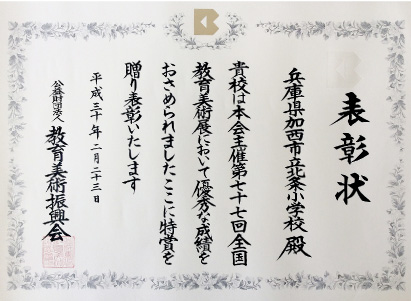 表彰状
兵庫県加西市立北条小学校 殿
貴校は本会主催第七十七回全国
教育美術展において優秀な成績を
おさめられましたここに特賞を
贈り表彰いたします
平成三十年二月二十三日
公益財団法人 教育美術振興会